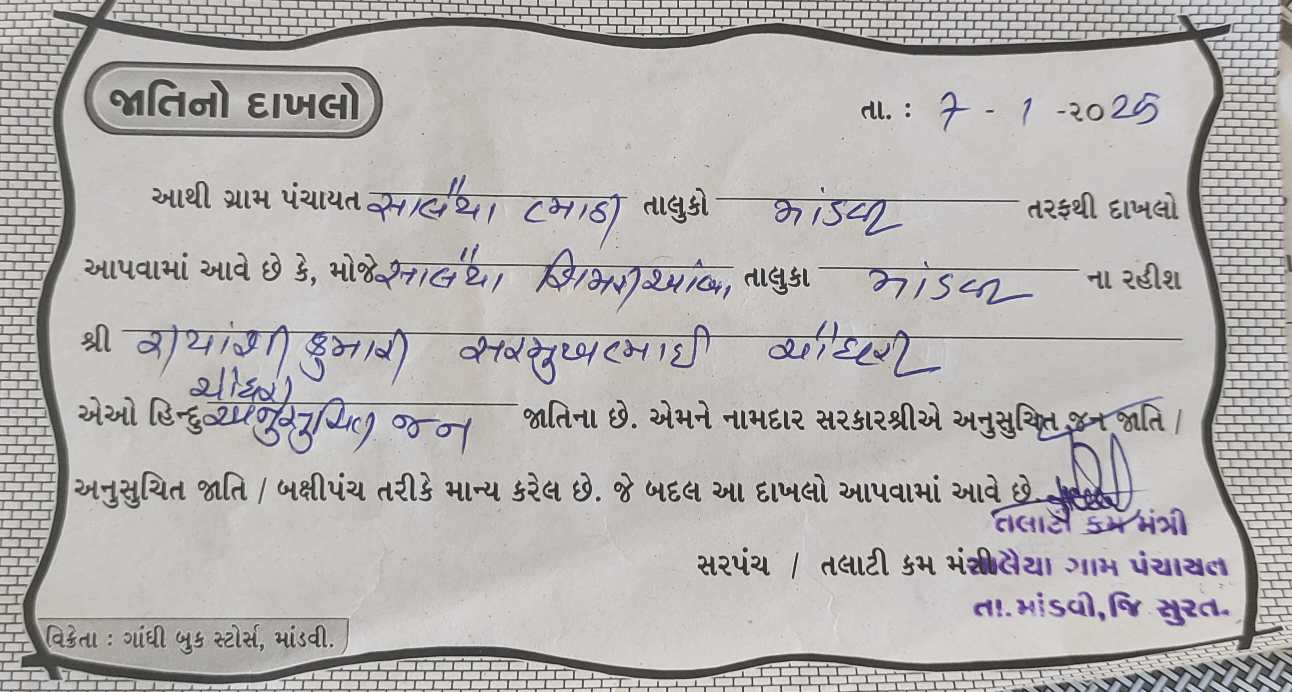 જાતિનો દાખલો
તા. : 7 - 1 -૨૦25
આથી ગ્રામ પંચાયત સાલૈયા તાલુકો માંડવી તરફથી દાખલો
આપવામાં આવે છે કે, મોજે સાલૈયા તાલુકા માંડવી ના રહીશ
શ્રી કુમારી ચૌધરી
ચૌધરી
એઓ હિન્દુ અનુસુચિત જન જાતિના છે. એમને નામદાર સરકારશ્રીએ અનુસુચિત જન જાતિ /
અનુસુચિત જાતિ / બક્ષીપંચ તરીકે માન્ય કરેલ છે. જે બદલ આ દાખલો આપવામાં આવે છે.
તલાટી કમ મંત્રી
સરપંચ / તલાટી કમ મંત્રી
સાલૈયા ગામ પંચાયત
તા. માંડવી, જિ સુરત.
વિક્રેતા : ગાંધી બુક સ્ટોર્સ, માંડવી.